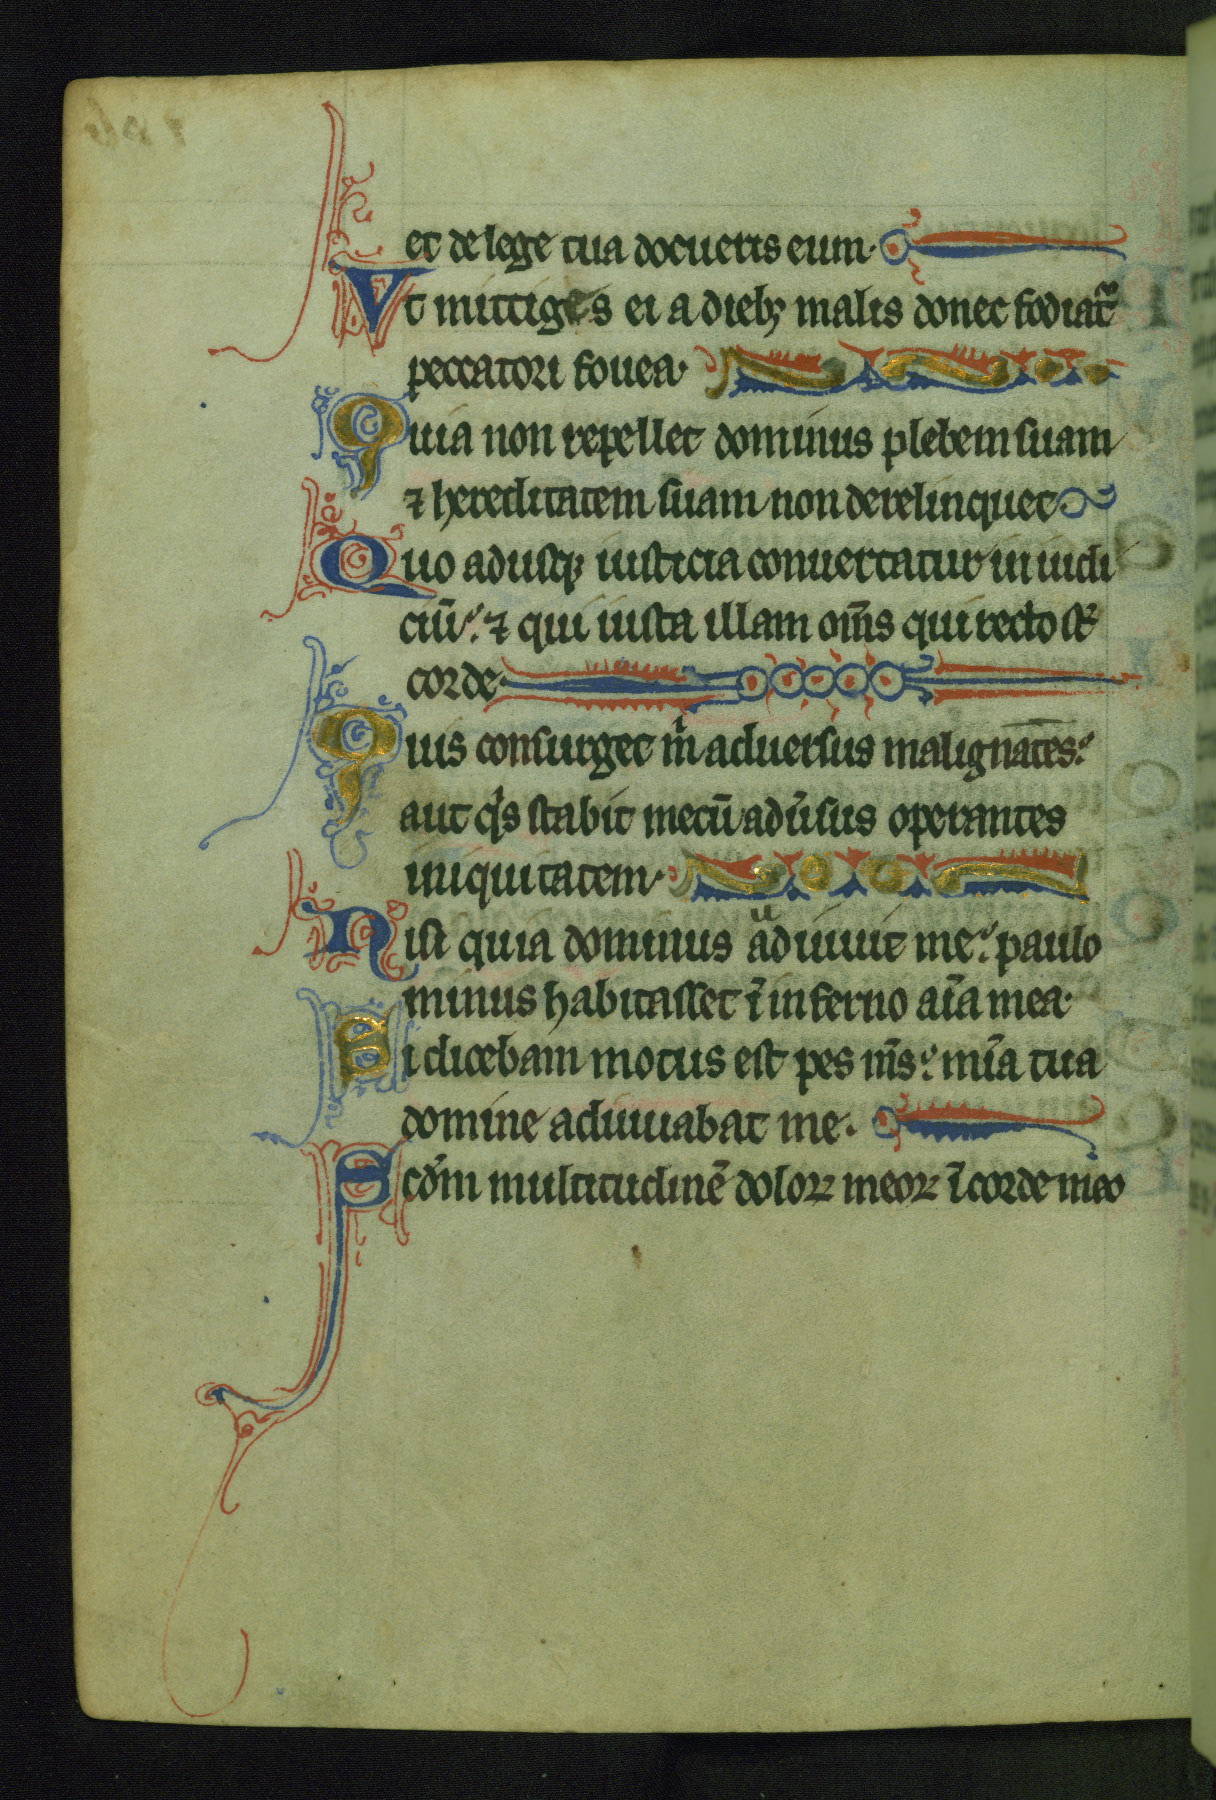 et de lege tua docueris eum·
Vt mittiges ei a dieb; malis donec fodiat᷑
peccatori fouea·
Quia non repellet dominus plebem suam
⁊ hereditatem suam non derelinquet
Quo adusq; iusticia conuertatur in iudi
ciū: ⁊ qui iusta illam om̄s qui recto st̄
corde·
Quis consurget m̍ aduersus malignātes:
aut qͥs stabit mecū adūsus operantes
iniquitatem·
Nisi quia dominus adiuuit me: paulo
minus habitasset ī inferno aīa mea·
Si dicebam motus est pes m̄s: mīa tua
domine adiuuabat me·
Scd̄m multitudinē doloꝝ meoꝝ ī corde meo